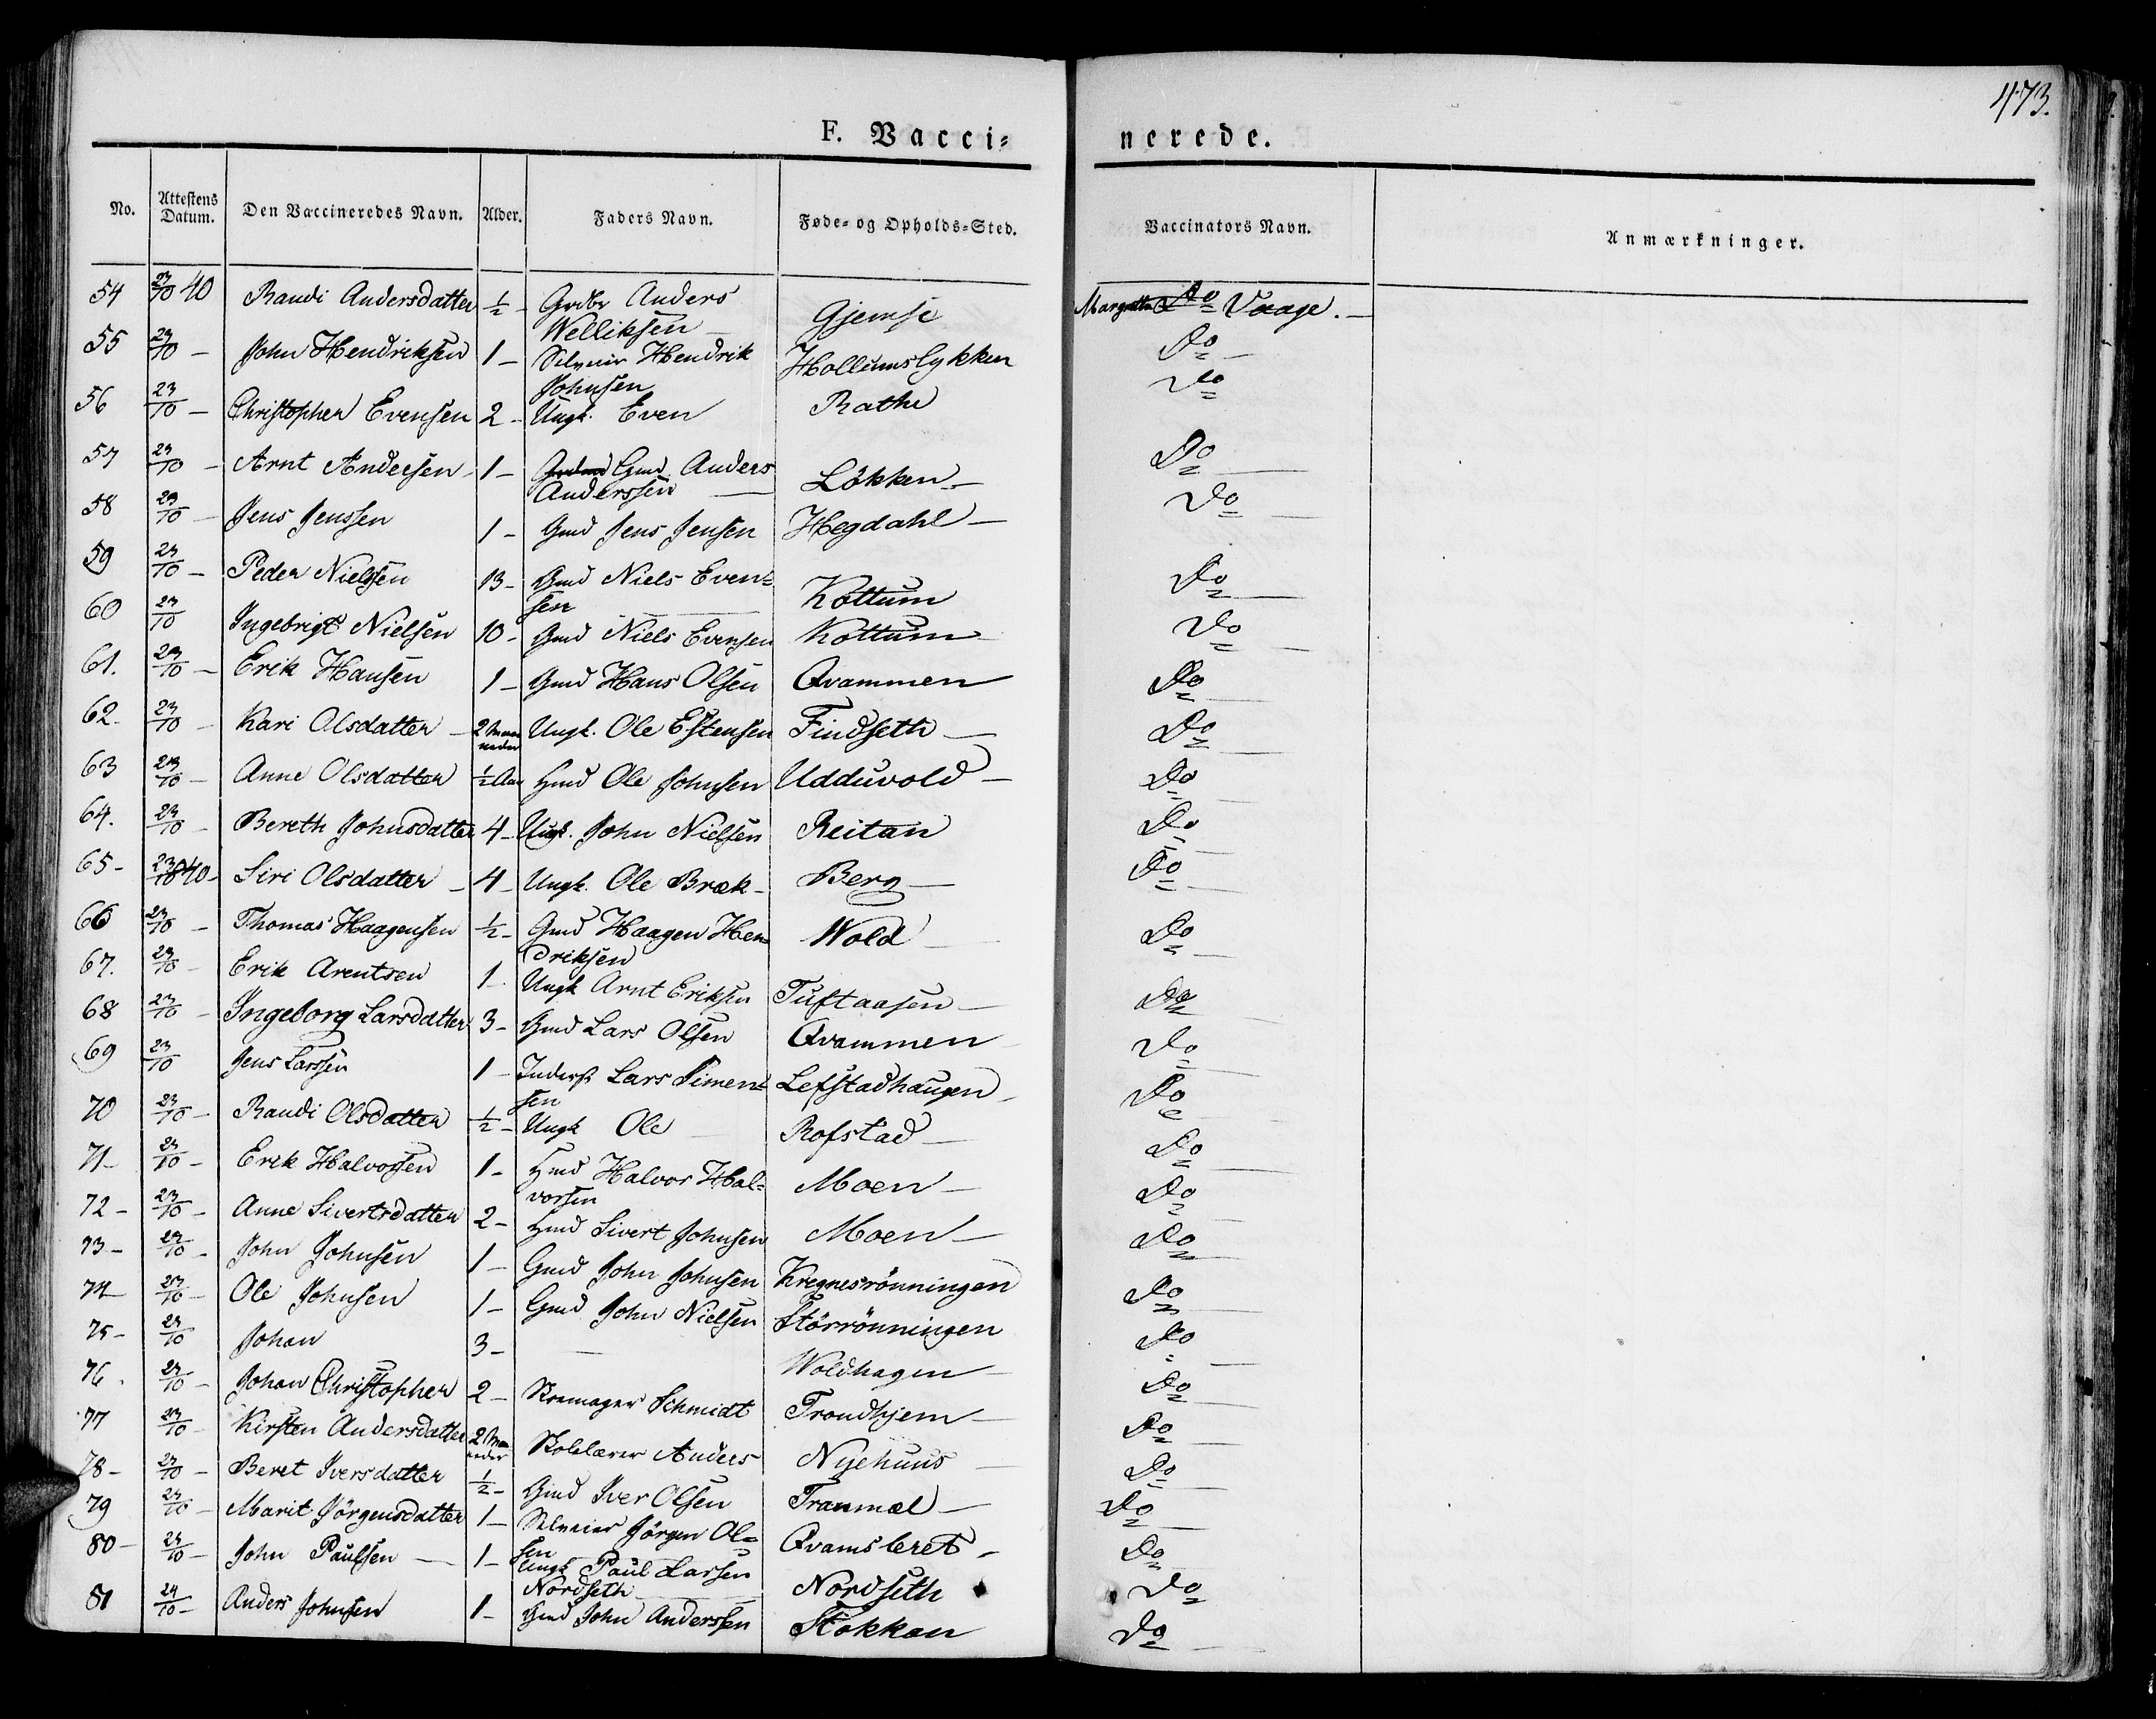 473.
F. Vacci=nerede.
No. Attestens Datum. Den Vaccineredes Navn. Alder. Faders Navn. Føde= og Opholds=Sted. Vaccinators Navn. Anmærkninger.
54 23/10 40 Randi Andersdatter ½ - Grdbr Anders Gjemse Margrethe Do Vaage. -
Welliksen -
55 23/10 - John Hendriksen 1 - Selveier Hendrik Hollumslykken Do -
Johnsen
56 23/10 - Christopher Evensen 2 - Ungk. Even Rathe Do
57 23/10 - Arnt Andersen - 1 - Gmd Anders Løkken - Do -
Anderssen -
58 23/10 - Jens Jenssen 1 - Gmd Jens Jensen Hegdahl - Do -
59 23/10 - Peder Nielssen 13 - Gmd Niels Even= Kottum Do -
sen -
60 23/10 Ingebrigt Nielsen 10 - Gmd Niels Evensen Kottum Do -
61. 23/10 - Erik Hansen 1 - Gmd Hans Olsen Qvammen Do -
62 - 23/10 - Kari Olsdatter - 2 Maa Ungk. Ole Estensen Findseth - Do -
neder
63 23/10 - Anne Olsdatter ½ Aar Hmd Ole Johnsen Udduvold - Do -
64. 23/10 - Bereth Johnsdatter 4 - Ungk. John Nielsen Reitan Do -
65 - 23/10 40 - Siri Olsdatter - 4 - Ungk. Ole Bræk - Berg - Do -
66 23/10 - Thomas Haagensen ½ - Gmd Haagen Hen= Wold - Do -
driksen
67. 23/10 - Erik Arentsen 1 - Ungk Arnt Eriksen Tuftaasen - Do -
68 23/10 - Ingeborg Larsdatter 3 - Gmd Lars Olsen Qvammen Do -
69 23/10 Jens Larssen 1 - Inderst Lars Simen= Lefstadhaugen - Do -
sen
70 23/10 - Randi Olsdatter ½ - Ungk Ole - Rofstad - Do -
71 - 23/10 - Erik Halvorsen 1 - Hmd Halvor Hal= Moen - Do -
vorsen
72 - 23/10 - Anne Sivertsdatter 2 - Hmd Sivert Johnsen Moen - Do -
73 - 23/10 - John Johnsen 1 - Gmd John Johnsen Kregnesrønningen Do -
74 23/10 - Ole Johnsen 1 - Gmd John Nielsen Størrønningen Do -
75 - 23/10 Johan 3 - - Woldhagen - Do -
76. 23/10 - Johan Christopher 2 - Skomager Schmidt Trondhjem - Do -
77 23/10 - Kirsten Andersdatter 2 Maa Skolelærer Anders Nyehuus - Do -
neder
78 - 23/10 - Beret Iversdatter ½ - Gmd Iver Olsen Tranmæl - Do -
79 23/10 - Marit Jørgensdatter 1 - Selveier Jørgen Ol= Qvamsleret - Do -
sen
80 - 23/10 - John Paulsen - 1 - Ungk Paul Larsen Nordseth Do
Nordseth -
81 24/10 - Anders Johnsen 1 - Gmd John Anderssen Stokkan Do -